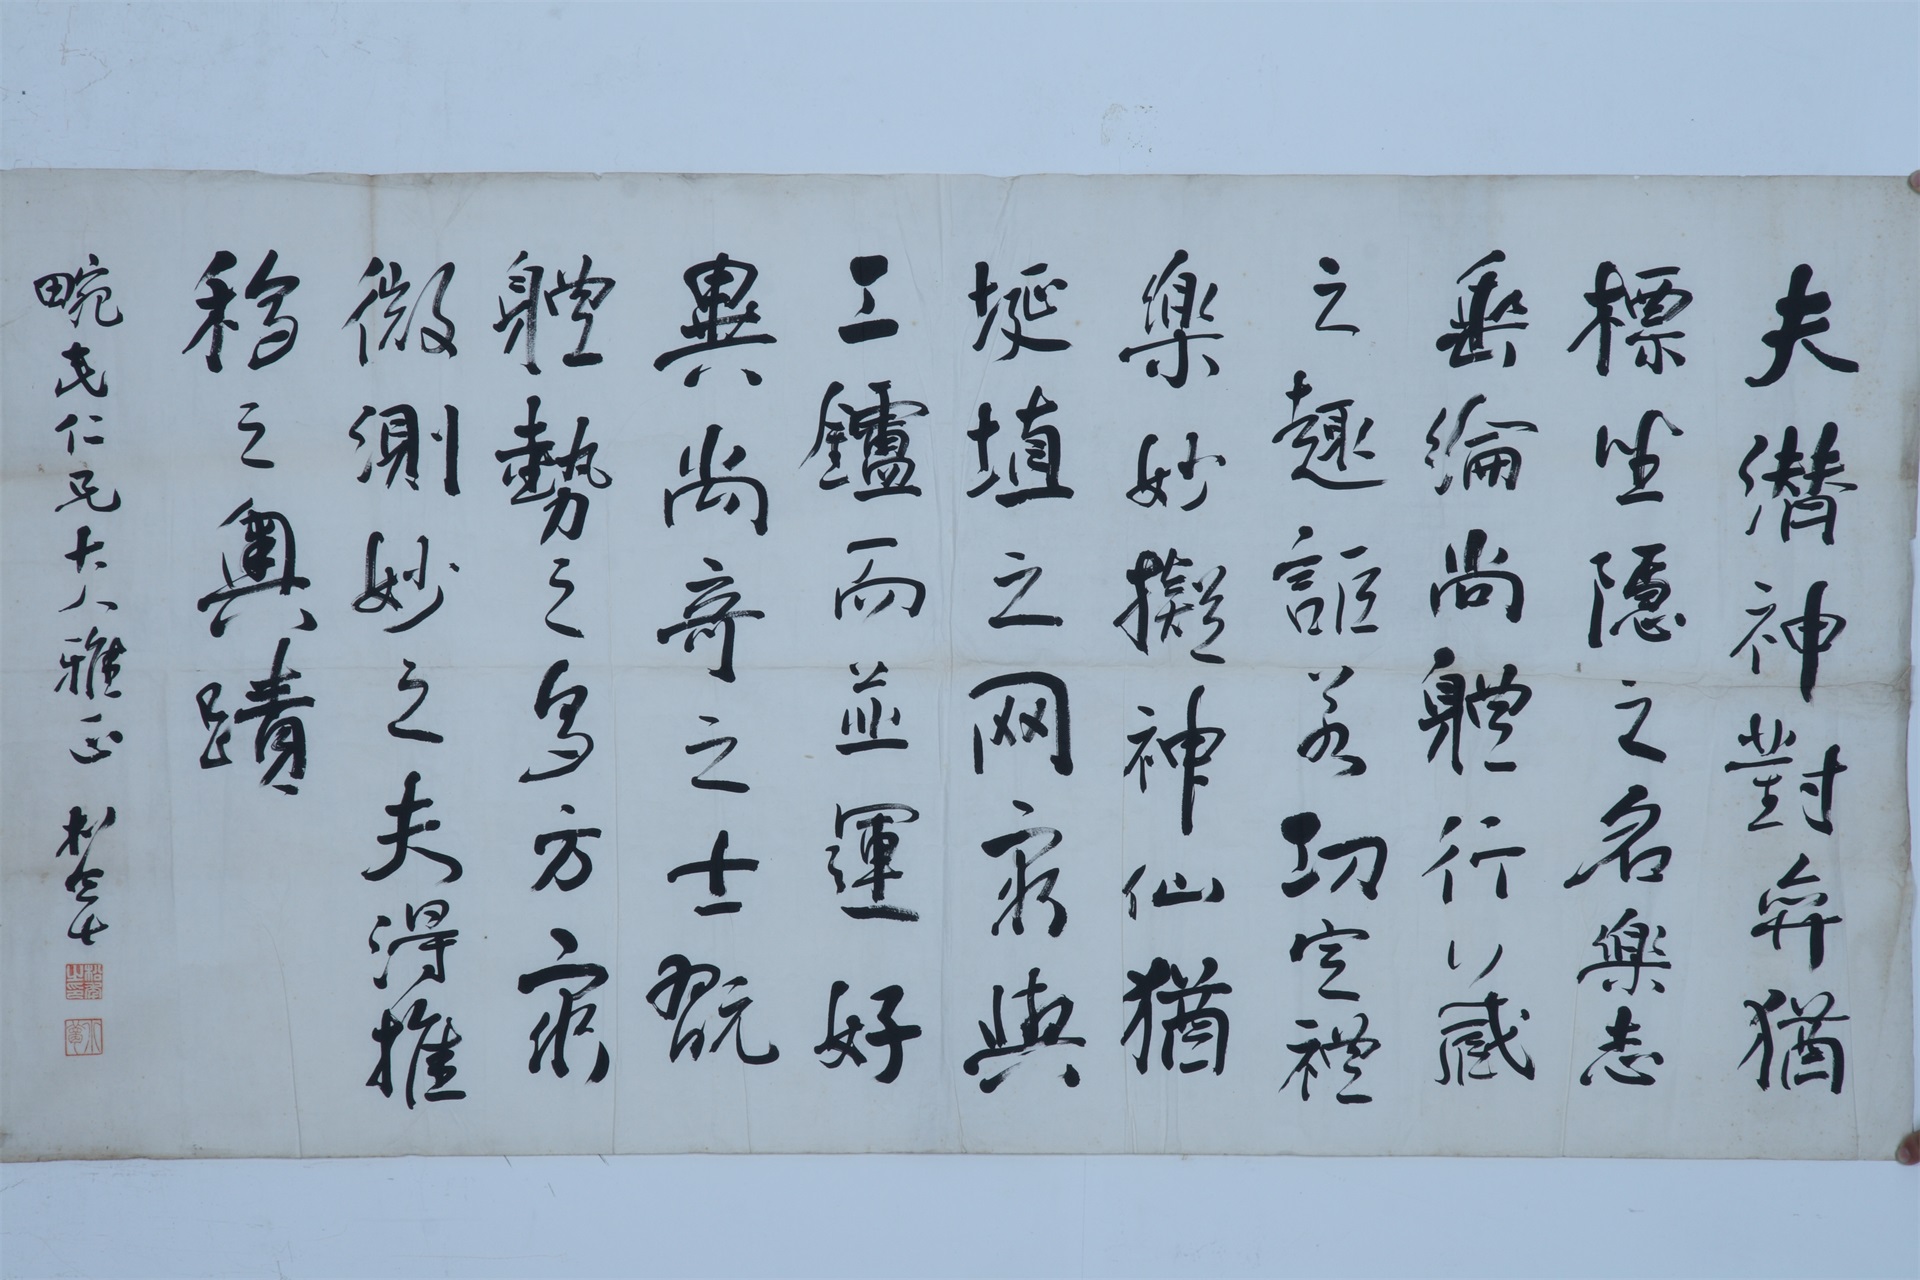 夫潛神對弈猶
標坐隱之名樂志
垂綸尚體行藏
之趣詎若功定禮
樂妙擬神仙猶
埏埴之罔窮與
工鑪而並運好
異尚奇之士翫
體勢之多方窮
微測妙之夫得推
移之奧賾
畹民仁兄大人雅正 松